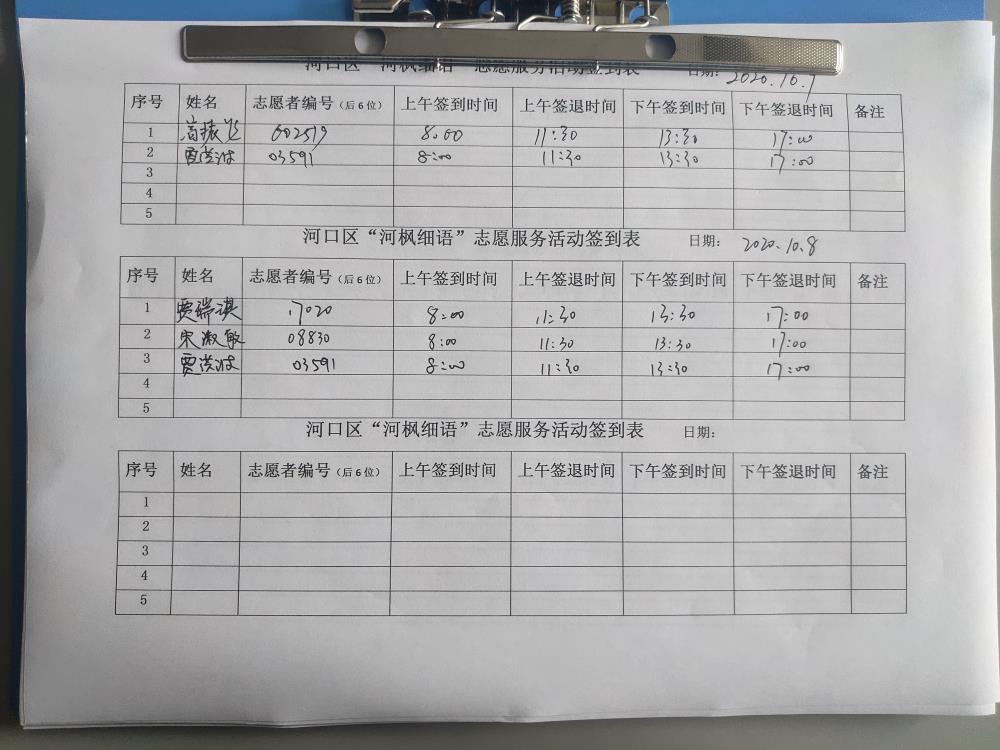 河口区“河枫细语”志愿服务活动签到表 日期: 2020.10.7
序号 姓名 志愿者编号(后6位) 上午签到时间 上午签退时间 下午签到时间 下午签退时间 备注
1 高振飞 602519 8:00 11:30 13:30 17:00
2 贾洪波 03591 8:00 11:30 13:30 17:00
3
4
5
河口区“河枫细语”志愿服务活动签到表 日期: 2020.10.8
序号 姓名 志愿者编号(后6位) 上午签到时间 上午签退时间 下午签到时间 下午签退时间 备注
1 贾瑞淇 17020 8:00 11:30 13:30 17:00
2 宋淑敏 08830 8:00 11:30 13:30 17:00
3 贾洪波 03591 8:00 11:30 13:30 17:00
4
5
河口区“河枫细语”志愿服务活动签到表 日期:
序号 姓名 志愿者编号(后6位) 上午签到时间 上午签退时间 下午签到时间 下午签退时间 备注
1
2
3
4
5